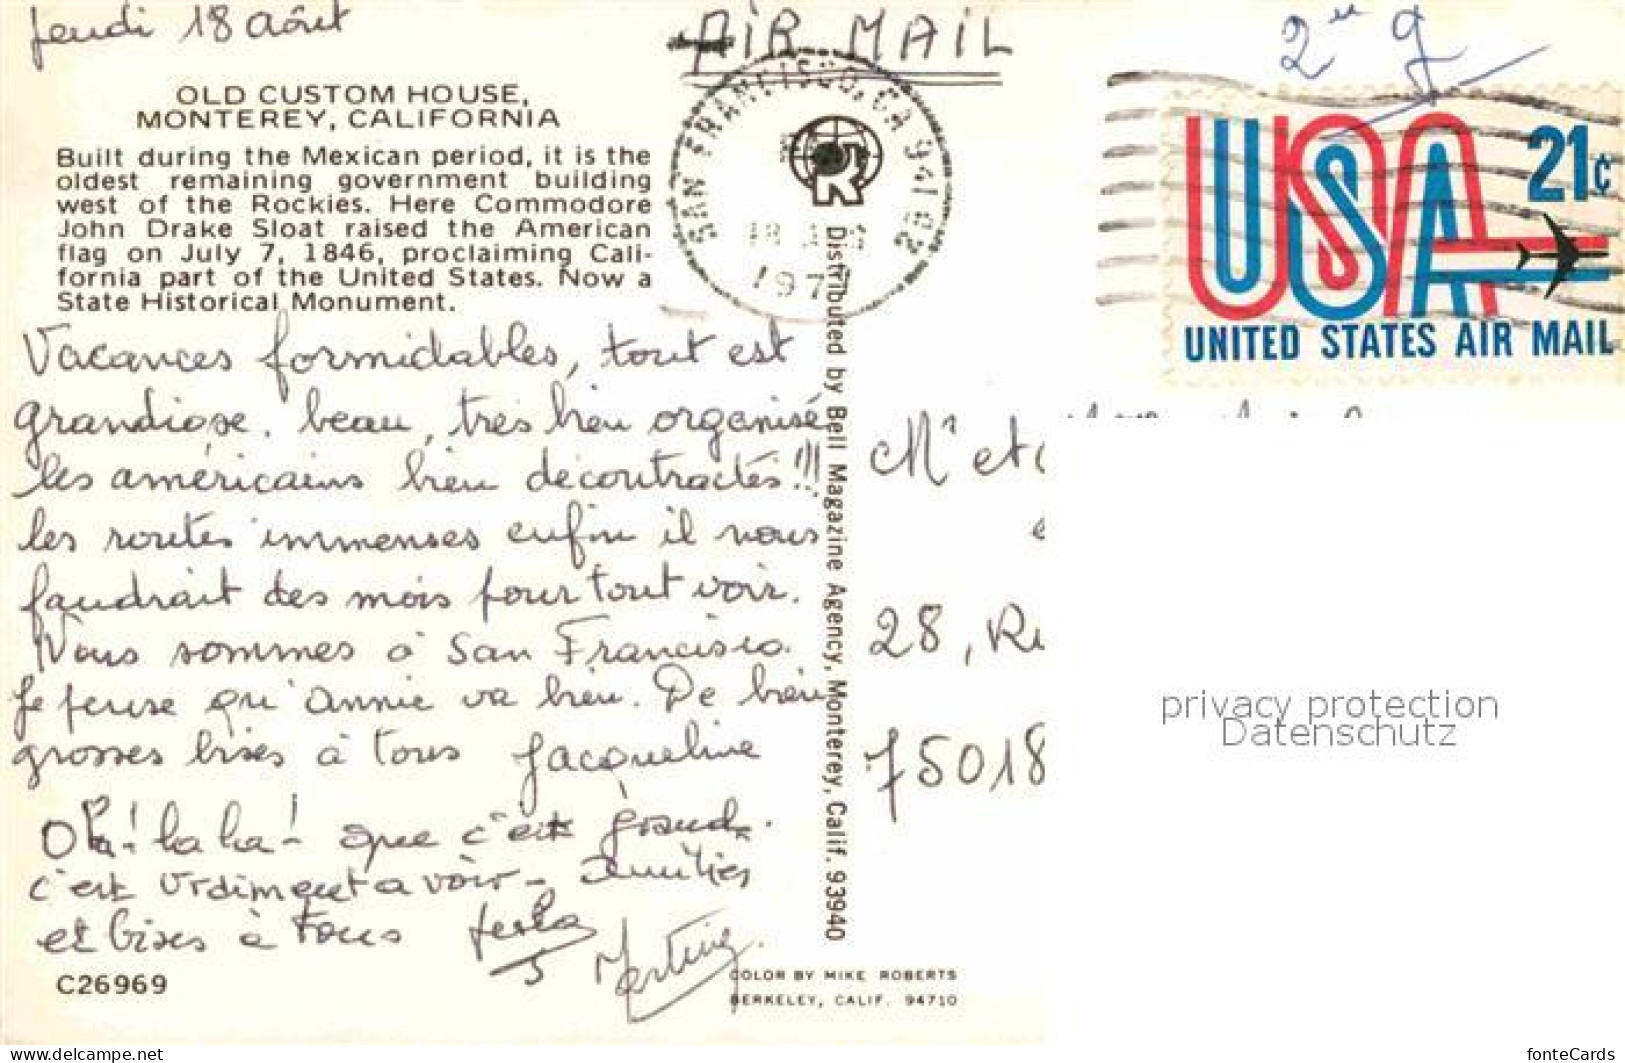 Jeudi 18 août
AIR MAIL
2
OLD CUSTOM HOUSE,
MONTEREY, CALIFORNIA
Built during the Mexican period, it is the
oldest remaining government building
west of the Rockies. Here Commodore
John Drake Sloat raised the American
flag on July 7, 1846, proclaiming Cali-
fornia part of the United States. Now a
State Historical Monument.
SAN FRANCISCO, CA 941
18
1977
USA 21c
UNITED STATES AIR MAIL
Vacances formidables, tout est
grandiose, beau, très bien organisé
les américains bien décontractés!!!
les routes immenses enfin il nous
faudrait des mois pour tout voir.
Nous sommes à San Francisco.
Je pense qu'Annie va bien. De bien
grosses bises à tous Jacqueline
Oh! la la! que c'est grand.
c'est vraiment a voir - Amitiés
et bises à tous
Martine
Distributed by Bell Magazine Agency, Monterey, Calif. 93940
Mr et
28, Ru
75018
privacy protection
Datenschutz
C26969
COLOR BY MIKE ROBERTS
BERKELEY, CALIF. 94710
www.delcampe.net
fonteCards